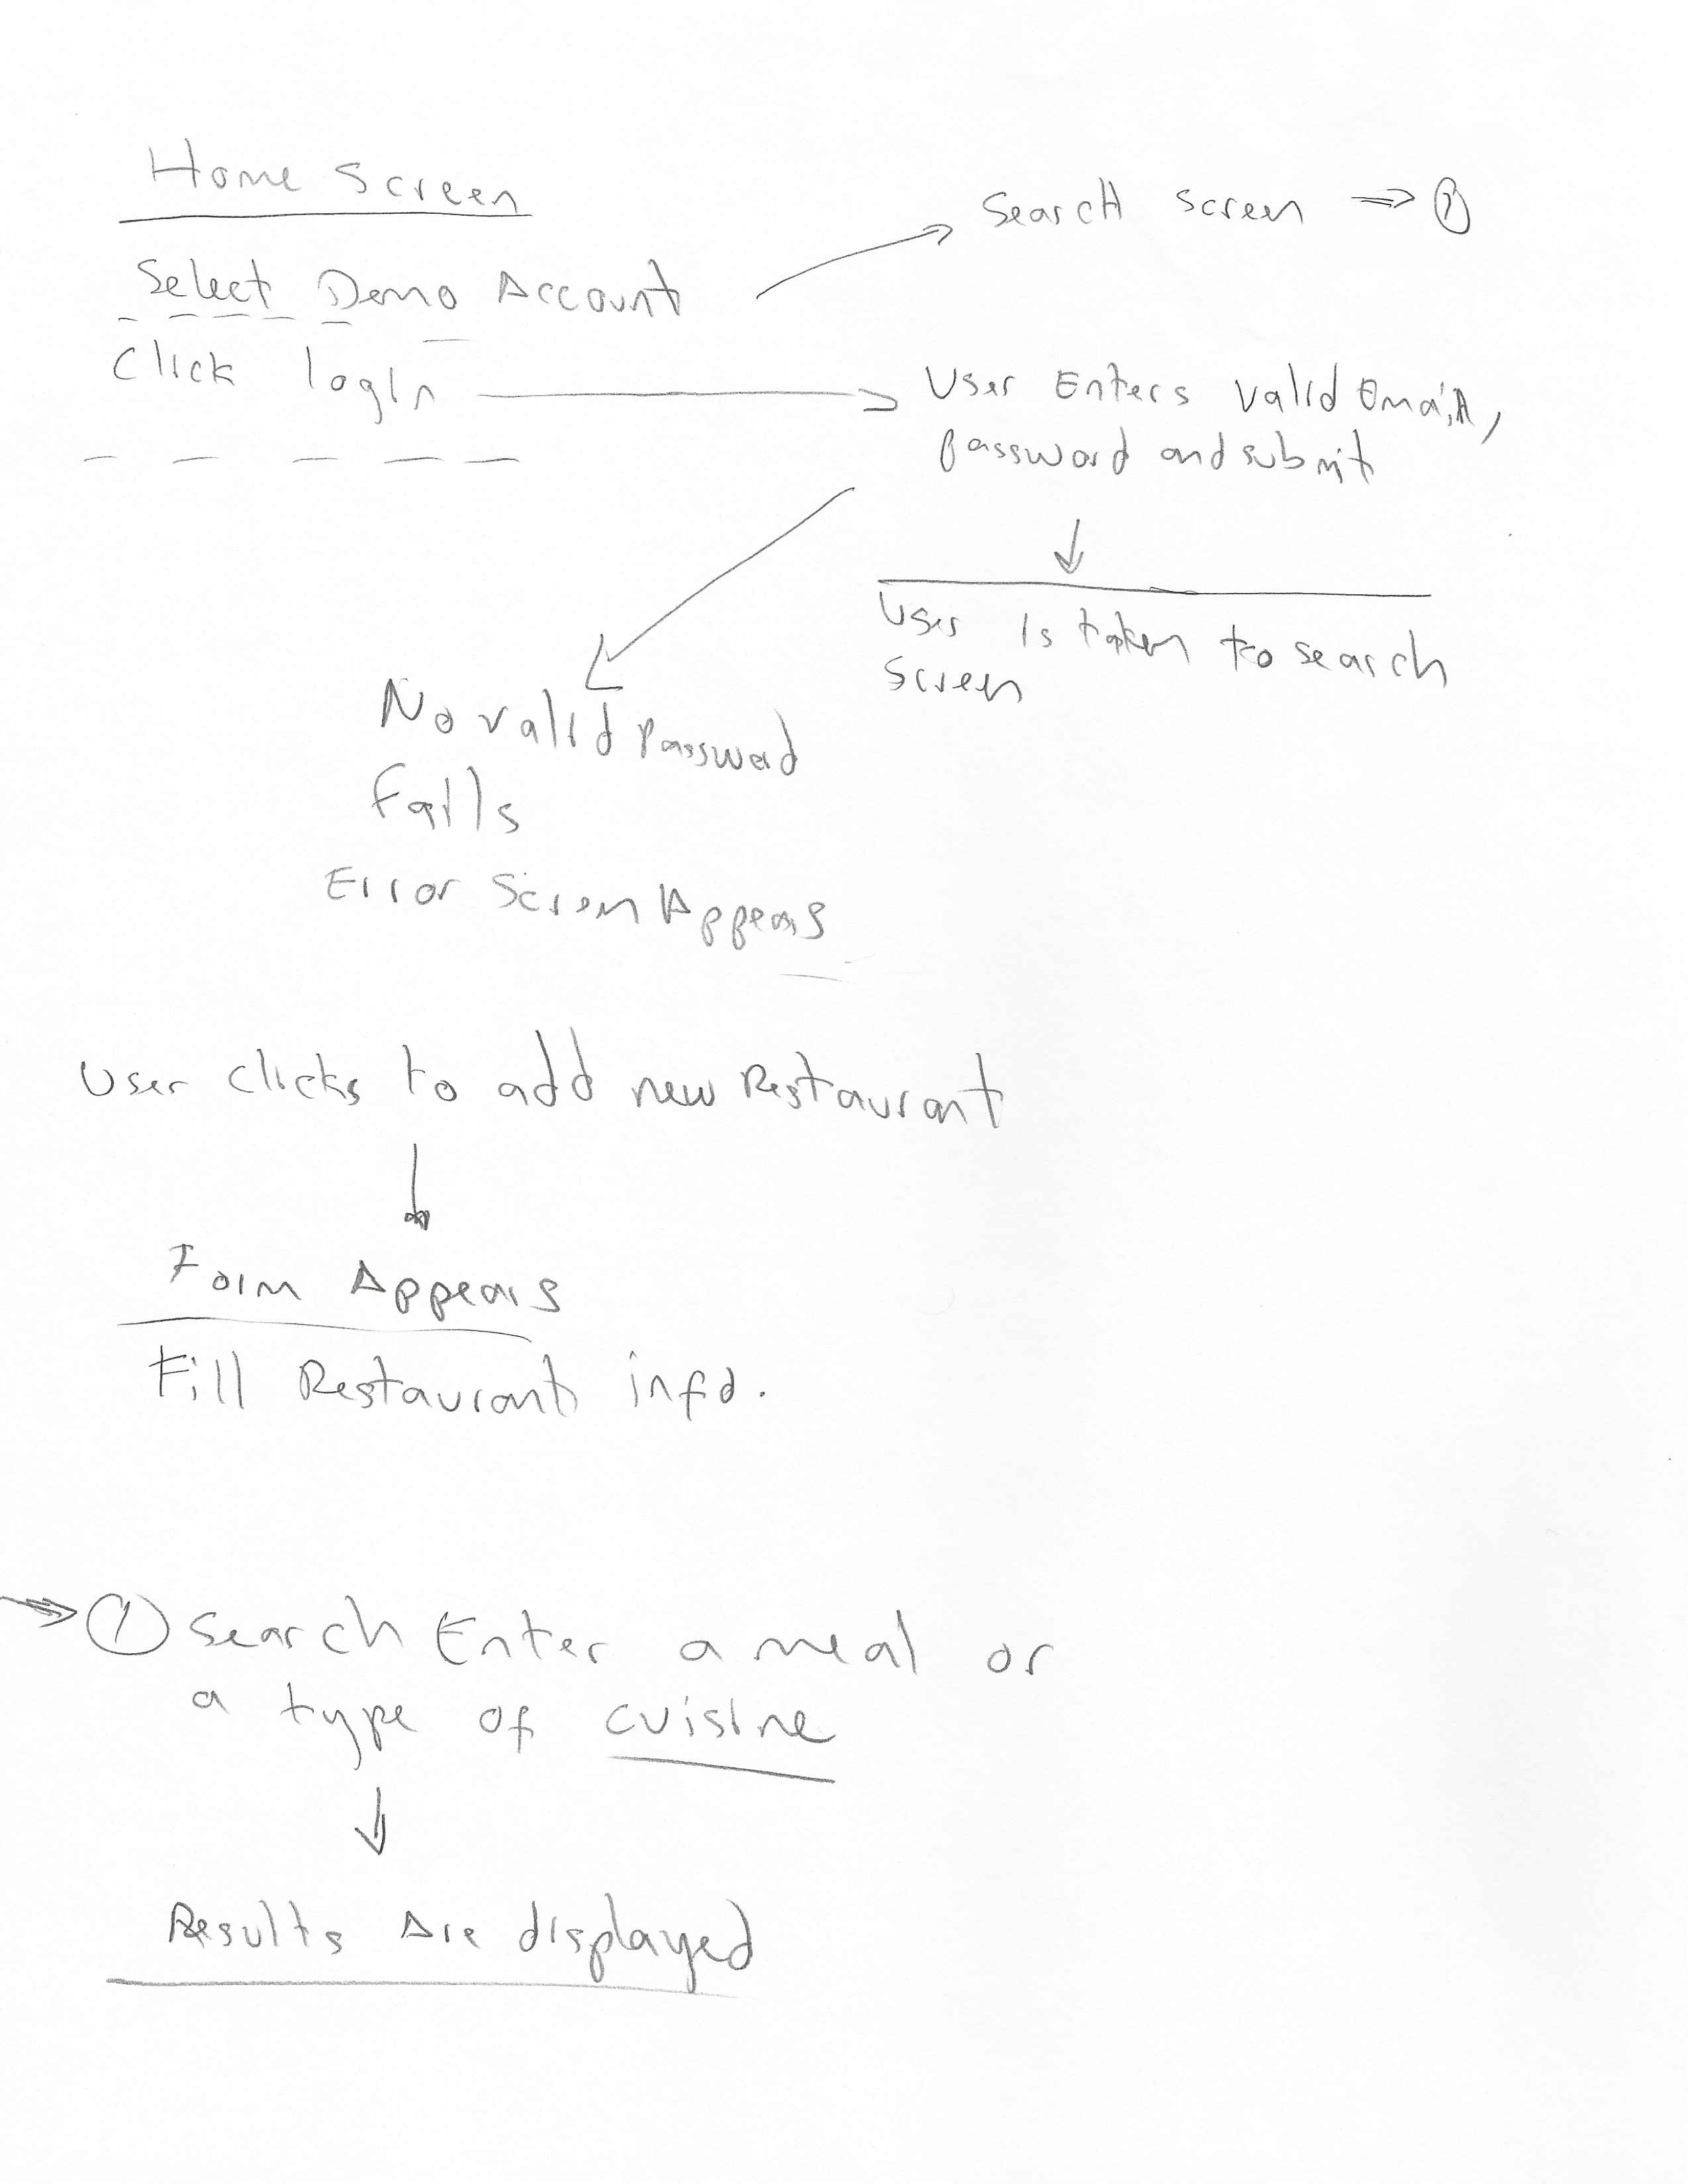 Home Screen
Search screen ⇒ ①
Select Demo Account
Click logIn
User Enters valid Email,
password and submit
User is taken to search
screen
No valid Password
Fails
Error Screen Appears
User clicks to add new Restaurant
Form Appears
Fill Restaurant info.
⇒ ① Search Enter a meal or
a type of cuisine
Results Are displayed